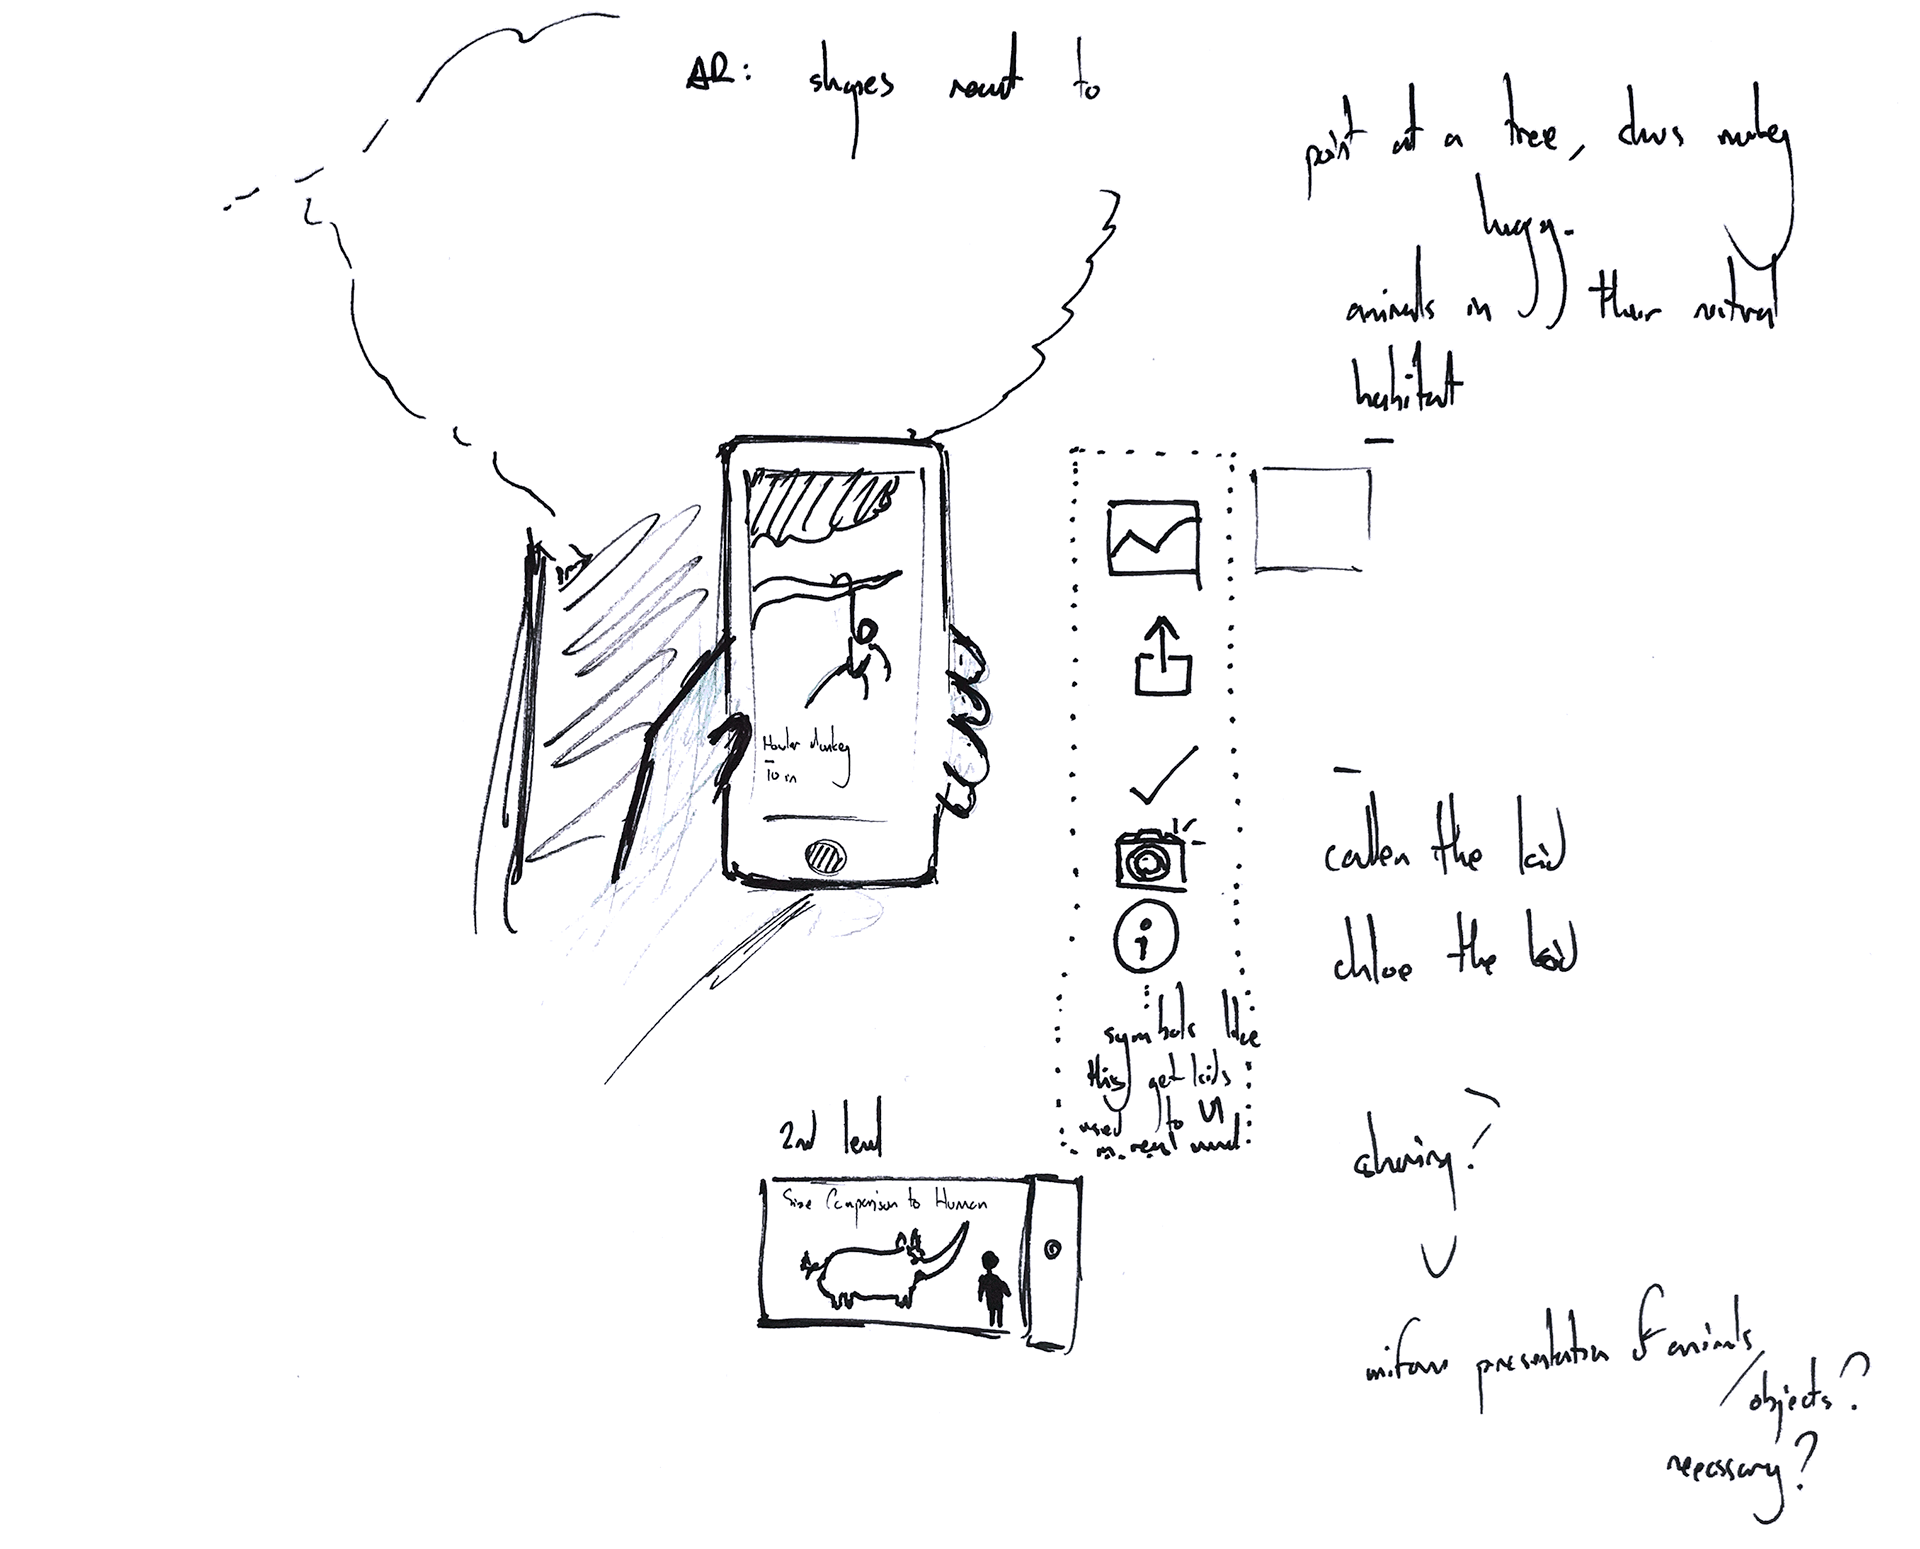 AR: shapes react to
point at a tree, shows monkey
hugg.
animals in their natural
habitat
Howler Monkey
10 m
i
symbols like
this get kids
used to UI
in real world
callen the kid
chloe the kid
2nd level
Size Comparison to Human
sharing?
uniform presentation of animals
/objects?
necessary?